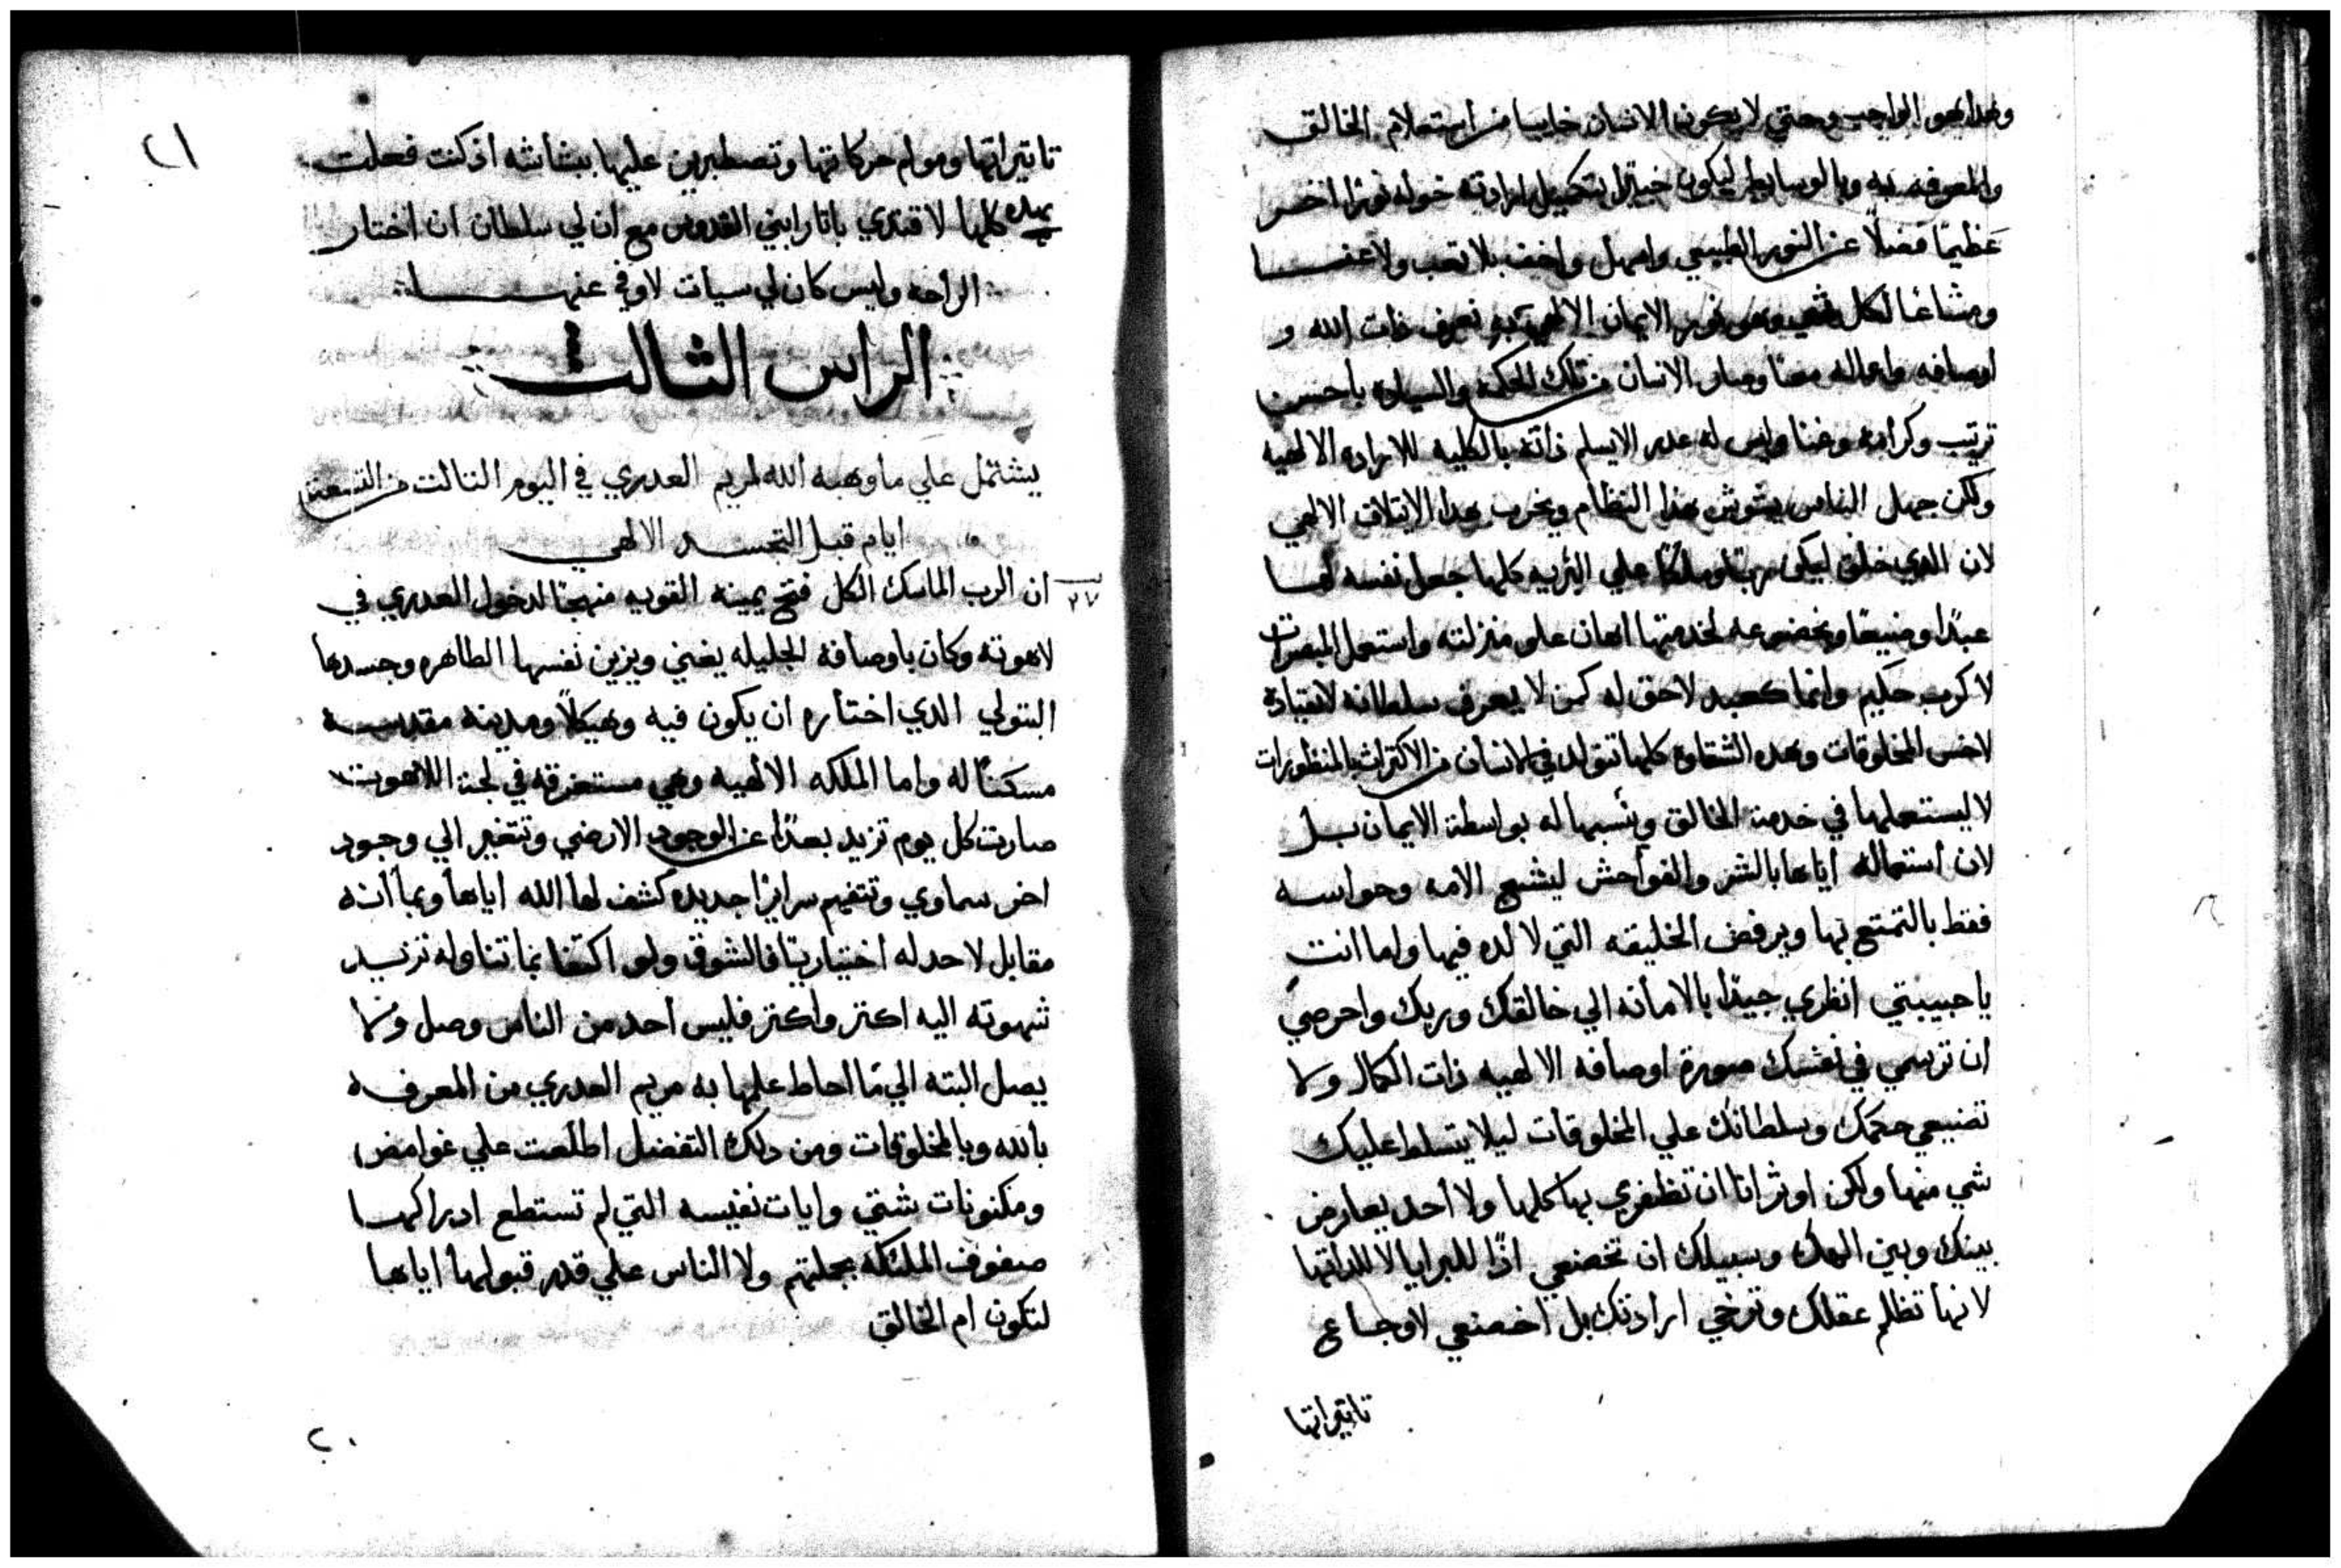 وهدا هو الواجب وحتي لا يكون الانسان خايبا من استعلام الخالق
والمعرفه به وبالوسايط ليكون خبيرًا بتكميل ارادته خوله نورًا اخر
عظيمًا فضلاً عن النور الطبيعي واسهل واخف بلا تعب ولا عنـــا
ومشاعًا لكل وهو نور الايمان الالهي به نعرف ذات الله و
اوصافه واعماله معًا وصار الانسان من تلك الحكمه والسياده باحسن
ترتيب وكرامه وغنا وليس له عدر الا يسلم ذاته بالكليه للاراده الالهيه
ولكن جهل الناس يشوش هذا النظام ويخرب هدا الايتلاف الالهي
لان الدي خلق ليكن ربًا وملكًا علي البريه كلها جعل نفسه لهـا
عبدًا وضيعًا وبخضوعه لخدمتها اهان علو منزلته واستعمل المبصرات
لا كرب حكيم وانما كعبد لاحق له كمن لا يعرف سلطانه لانقياده
لاخس المخلوقات وهده الشقاوه كلها تتولد في الانسان من الاكتراث بالمنظورات
لا ليستعملها في خدمة الخالق وينسبها له بواسطة الايمان بــل
لان استعماله اياها بالشر والفواحش ليشبع الامه وحواســه
فقط بالتمتع بها ويرفض الخليقه التي لا لده فيها واما انت
يا حبيبتي انظري جيدًا بالامانه الي خالقك وربك واحرصي
ان ترسمي في نفسك صورة اوصافه الالهيه ذات الكمال ولا
تضيعي حكمك وسلطانك علي المخلوقات ليلا يتسلط عليك
شي منها ولكن اوثر انا ان تظفري بها كلها ولا احد يعارض
بينك وبين الهك وسبيلك ان تخضعي اذًا للبرايا لا للداتها
لانها تظلم عقلك وترخي ارادتك بل اخضعي لاوجاع
تاثيراتها
٢١
تاثيراتها ومولم حركاتها وتصطبرين عليها ببشاشه اذ كنت فعلت
بهده كلها لاقتدي باثار ابني القدوس مع ان لي سلطان ان اختار
الراحه وليس كان لي سيات لاوفي عنهــــا
الراس الثالث
يشتمل علي ما وهبه الله لمريم العدري في اليوم الثالث من التسعة
ايام قبل التجســد الالهي
٢٧
ان الرب الماسك الكل فتح يمينه القويه منهجًا لدخول العدري في
لاهوته وكان باوصافه الجليله يغني ويزين نفسها الطاهره وجسدها
البتولي الدي اختاره ان يكون فيه وهيكلاً ومدينه مقدسـه
مسكنًا له واما الملكه الالهيه وهي مستغرقه في لجة اللاهوت
صارت كل يوم تزيد بعدًا عن الوجود الارضي وتتغير الي وجود
اخر سماوي وتتفهم سرايرًا جديده كشف لها الله اياها وبما انه
مقابل لا حد له اختياريًا فالشوق ولو اكتفا بما تناوله تزيـد
شهوته اليه اكتر واكتر فليس احد من الناس وصل ولا
يصل البته الي ما احاط علمها به مريم العدري من المعرفه
بالله وبالمخلوقات ومن دلك التفضل اطلعت علي غوامض
ومكنونات شتي وايات نفيسه التي لم تستطع ادراكهـا
صفوف الملئكه بجملتهم ولا الناس علي قدر قبولها اياها
لتكون ام الخالق